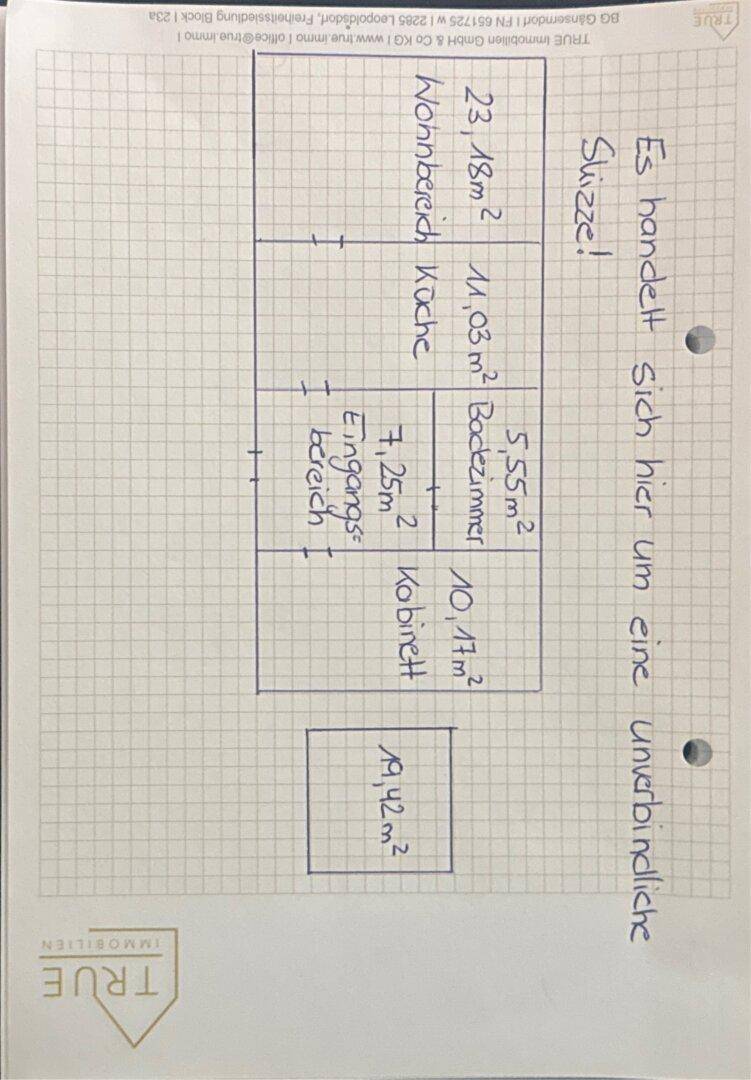 Es handelt sich hier um eine unverbindliche
Skizze!
23,18m²
Wohnbereich
11,03m²
Küche
5,55m²
Badezimmer
7,25m²
Eingangs=
bereich
10,17m²
Kabinett
19,42m²
TRUE
IMMOBILIEN
TRUE Immobilien GmbH & Co KG | www.true.immo | office@true.immo |
BG Gänserndorf | FN 651725 w | 2285 Leopoldsdorf, Freiheitssiedlung Block I 23a
TRUE